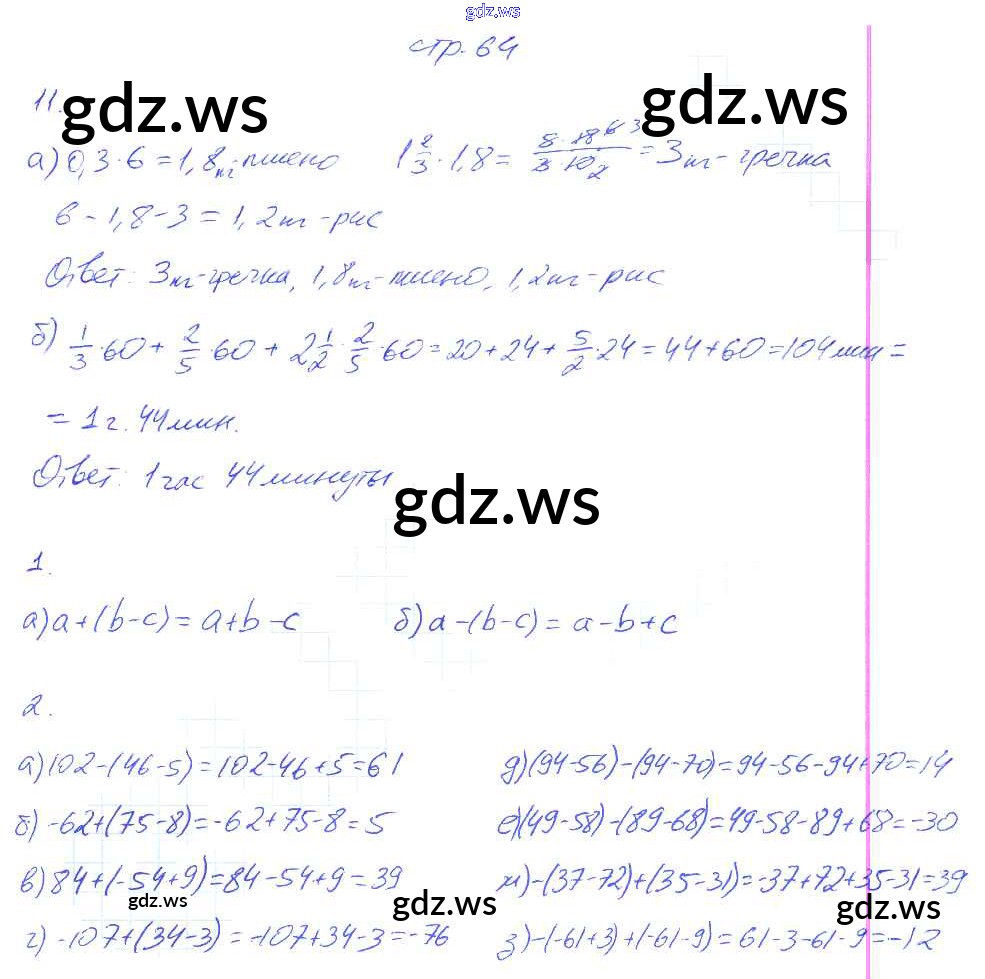 gdz.ws
стр. 64
11.
gdz.ws
gdz.ws
а) 0,3·6=1,8кг-пшено 1 2/3·1,8= 5·18 6 3/3·10 2 =3кг-гречка
6-1,8-3=1,2кг-рис
Ответ: 3кг-гречка, 1,8кг-пшено, 1,2кг-рис
б) 1/3·60+2/5·60+2 1/2·2/5·60=20+24+5/2·24=44+60=104мин=
=1г. 44мин.
Ответ: 1 час 44 минуты
gdz.ws
1.
а) a+(b-c)=a+b-c б) a-(b-c)=a-b+c
2.
а) 102-(46-5)=102-46+5=61 д) (94-56)-(94-70)=94-56-94+70=14
б) -62+(75-8)=-62+75-8=5 е) (49-58)-(89-68)=49-58-89+68=-30
в) 84+(-54+9)=84-54+9=39 ж) -(37-72)+(35-31)=-37+72+35-31=39
gdz.ws
gdz.ws
gdz.ws
г) -107+(34-3)=-107+34-3=-76 з) -(-61+3)+(-61-9)=61-3-61-9=-12